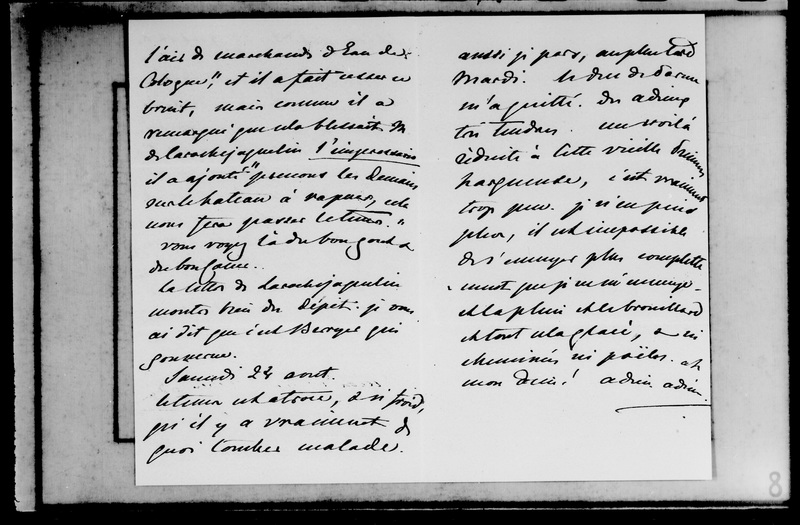 l'air de marchands d'Eau de
Cologne", et il a fait cesser ce
bruit, mais comme il a
remarqué que cela blessait M.
de Larochejaquelin l'impressario
il a ajouté "prenons les Demain
sur le bateau à vapeur, cela
nous fera passer le tems."
vous voyez là du bon gout &
du bon
la lettre de Larochejaquelin
montre bien du dépit. je vous
ai dit que c'est Berryer qui
gouverne.
Samedi 24 aout.
le tems est atroce, & si froid,
qu'il y a vraiment de
quoi tomber malade.
aussi je pars, au plus tard
Mardi. le duc de
m'a quitté. des adieux
très tendres. me voilà
réduite à cette vieille Princesse
hargneuse, c'est vraiment
trop peu. je n'en peux
plus, il est impossible
de s'ennuyer plus complette
-ment que je ne m'ennuye.
et la pluie et le brouillard
et tout cela glacé, & ni
cheminées ni poëles. ah
mon dieu! adieu adieu.
8